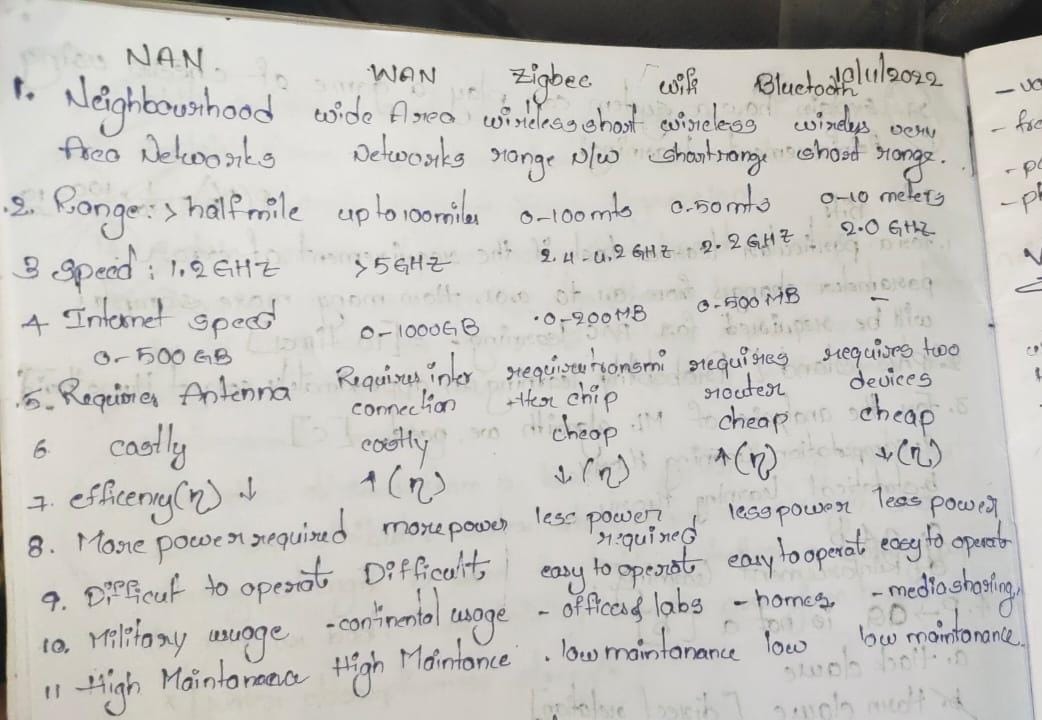 NAN. WAN Zigbee wifi Bluetooth 10/11/2022
1. Neighbourhood wide Area wireless short wireless wireless very
Area Networks Networks range N/w short range short range.
2. Range: > half mile up to 100 miles 0-100 mts 0-50 mts 0-10 meters
3 Speed: 1.2 GHZ >5 GHZ 2.4-4.2 GHZ 2.2 GHZ 2.0 GHZ
4 Internet speed 0-1000 GB 0-200 MB 0-500 MB -
0-500 GB
5. Requires Antenna Requires inter requires transmi requires requires two
connection tter chip router devices
6 costly costly cheap cheap cheap
7. efficency(η) ↓ ↑(η) ↓(η) ↑(η) ↓(η)
8. More power required more power less power less power less power
required
9. Difficult to operat Difficult easy to operat easy to operat easy to operat
10. Military usuage -continental usage - offices & labs - homes - media sharing,
11 High Maintanance High Maintance . low maintanance low low maintanance.